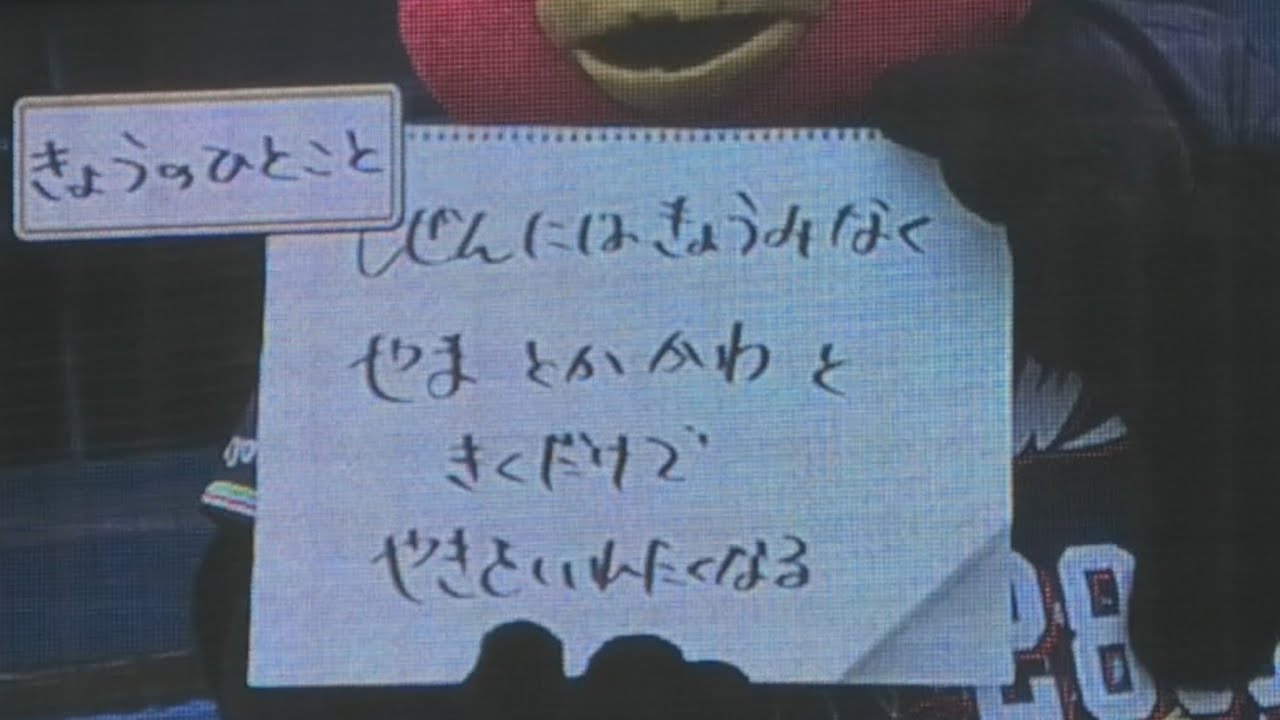 きょうのひとこと
しぜんにはきょうみなく
やま とか かわ と
きくだけで
やきをいれたくなる
28